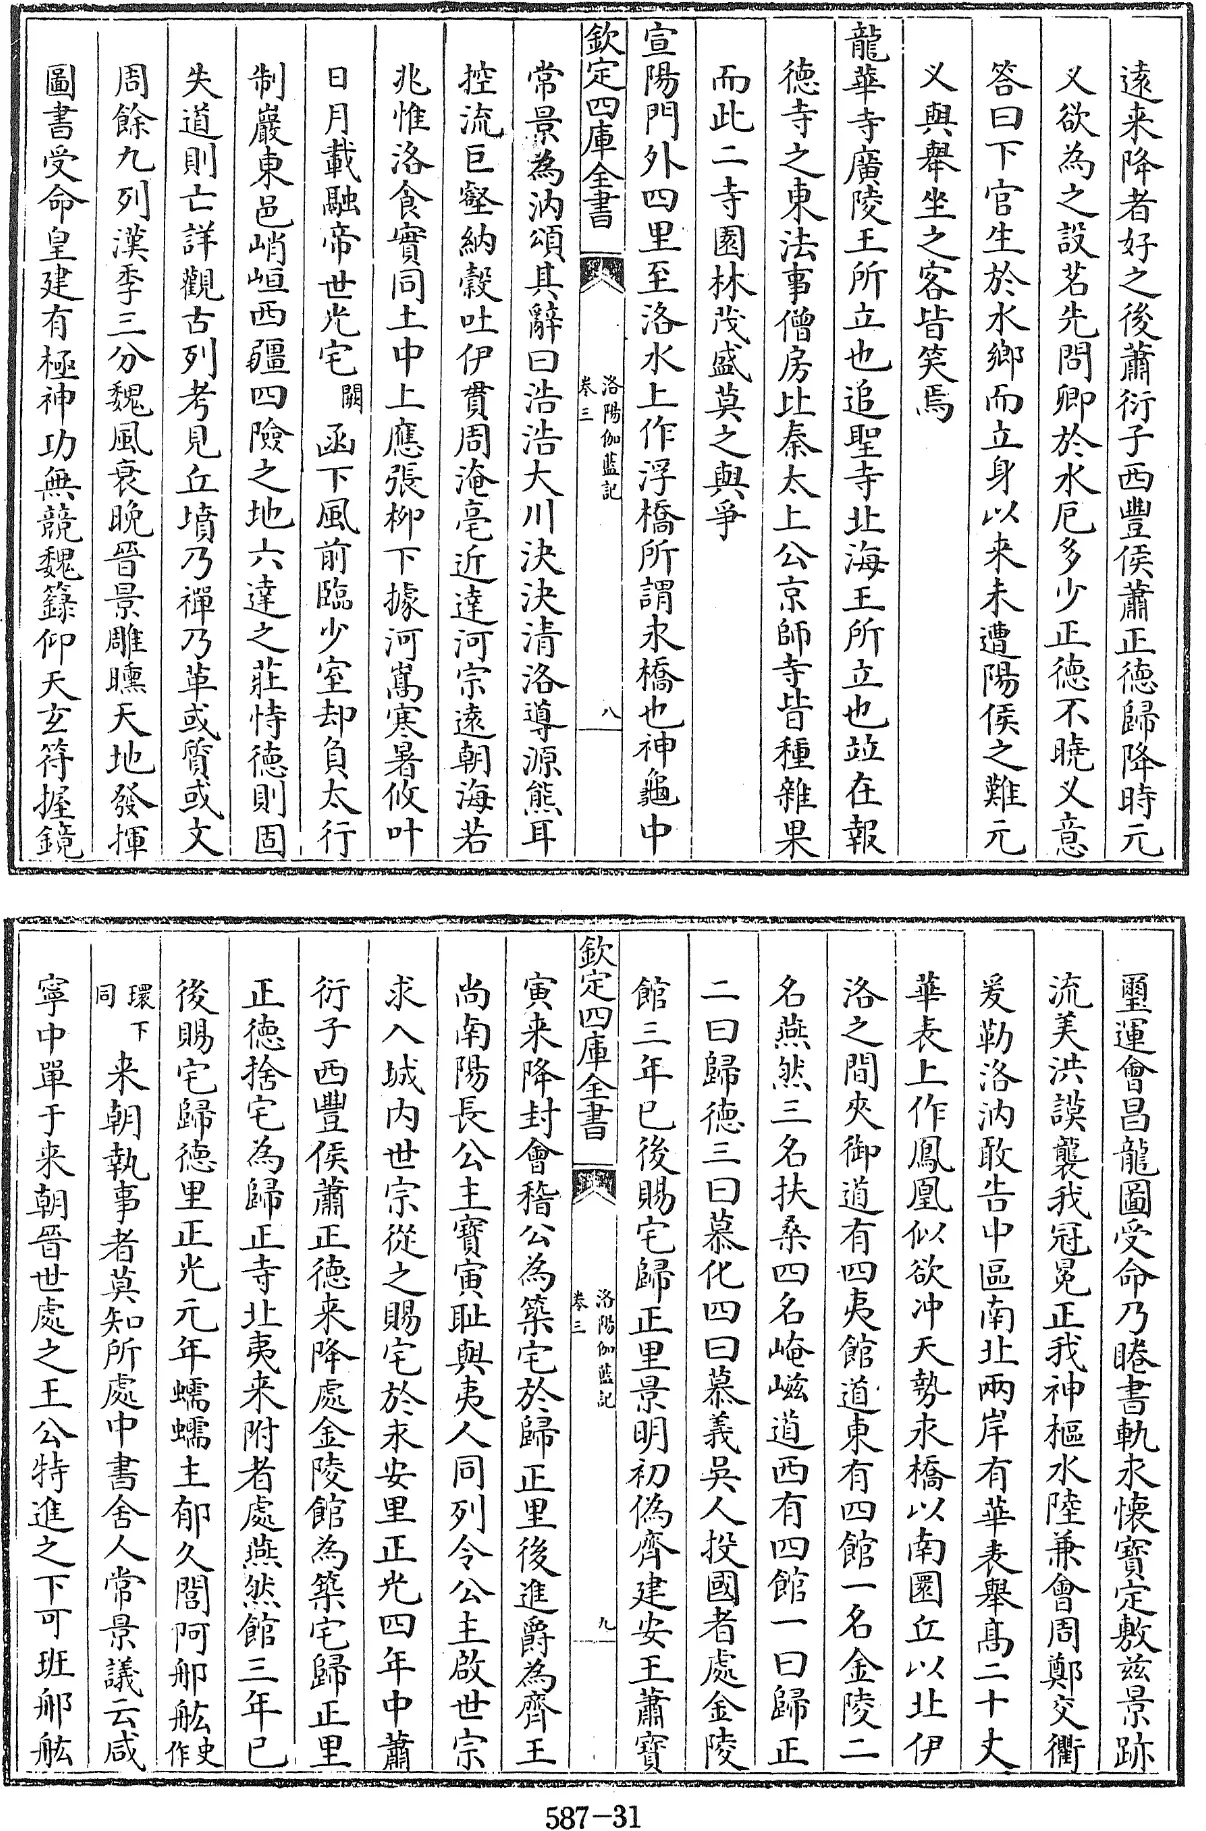 遠来降者好之後蕭衍子西豐侯蕭正德歸降時元
乂欲為之設茗先問卿於水厄多少正德不曉乂意
答曰下官生於水鄉而立身以来未遭陽侯之難元
乂與舉坐之客皆笑焉
龍華寺廣陵王所立也追聖寺北海王所立也竝在報
德寺之東法事僧房比秦太上公京師寺皆種雜果
而此二寺園林茂盛莫之與爭
宣陽門外四里至洛水上作浮橋所謂永橋也神龜中
欽定四庫全書
洛陽伽藍記
卷三
八
常景為汭頌其辭曰浩浩大川泱泱清洛導源熊耳
控流巨壑納穀吐伊貫周淹亳近達河宗遠朝海若
兆惟洛食實同土中上應張柳下據河嵩寒暑攸叶
日月載融帝世光宅闕函下風前臨少室却負太行
制巖東邑峭峘西疆四險之地六達之莊恃德則固
失道則亡詳觀古列考見丘墳乃禪乃革或質或文
周餘九列漢季三分魏風衰晚晉景雕曛天地發揮
圖書受命皇建有極神功無競魏籙仰天玄符握鏡
璽運會昌龍圖受命乃睠書軌永懷寶定敷茲景跡
流美洪謨襲我冠冕正我神樞水陸兼會周鄭交衢
爰勒洛汭敢告中區南北兩岸有華表舉高二十丈
華表上作鳳凰似欲冲天勢永橋以南圜丘以北伊
洛之間夾御道有四夷館道東有四館一名金陵二
名燕然三名扶桑四名崦嵫道西有四館一曰歸正
二曰歸德三曰慕化四曰慕義吳人投國者處金陵
館三年已後賜宅歸正里景明初偽齊建安王蕭寶
欽定四庫全書
洛陽伽藍記
卷三
九
寅来降封會稽公為築宅於歸正里後進爵為齊王
尚南陽長公主寶寅恥與夷人同列令公主啟世宗
求入城内世宗從之賜宅於永安里正光四年中蕭
衍子西豐侯蕭正德来降處金陵館為築宅歸正里
正德捨宅為歸正寺北夷来附者處燕然館三年已
後賜宅歸德里正光元年蠕蠕主郁久閭阿那舷史作
環下同来朝執事者莫知所處中書舍人常景議云咸
寧中單于来朝晉世處之王公特進之下可班那舷
587-31